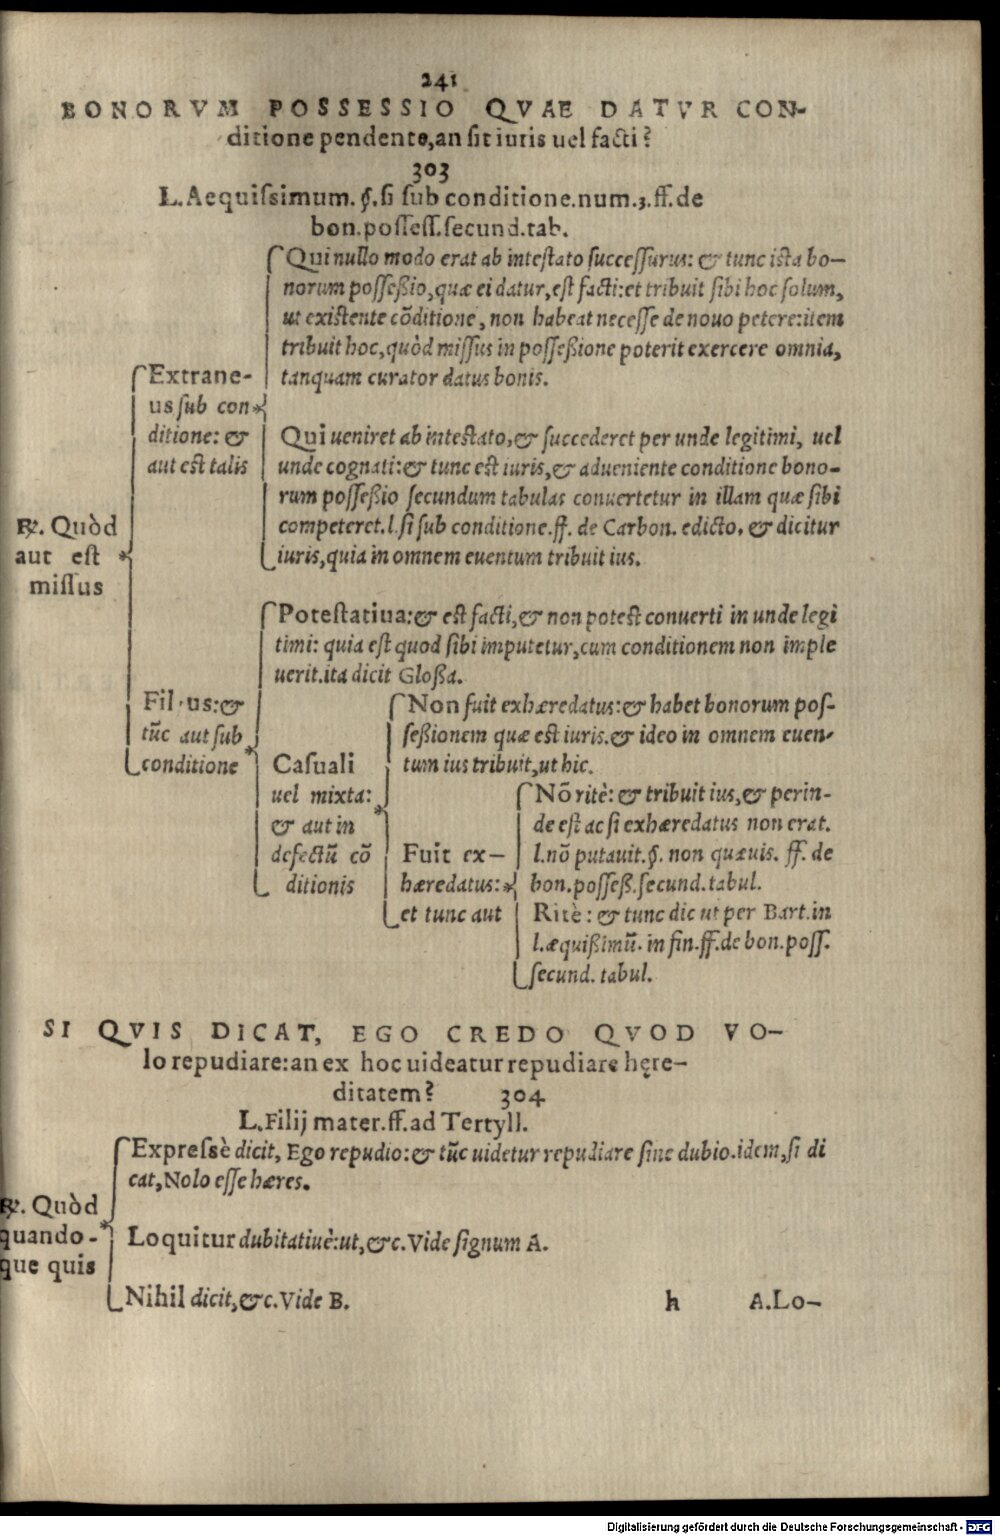 241
BONORVM POSSESSIO QVAE DATVR CON-
ditione pendente,an sit iuris uel facti?
303
L.Aequissimum.§.si sub conditione.num.3.ff.de
bon.possess.secund.tab.
℞. Quòd
aut est
missus
Extrane-
us sub con
ditione: &
aut est talis
Qui nullo modo erat ab intestato successurus: & tunc ista bo-
norum posseßio,quæ ei datur,est facti:et tribuit sibi hoc solum,
ut existente cõditione, non habeat necesse de nouo petere:item
tribuit hoc,quòd missus in posseßione poterit exercere omnia,
tanquam curator datus bonis.
Qui ueniret ab intestato,& succederet per unde legitimi, uel
unde cognati:& tunc est iuris,& adueniente conditione bono-
rum posseßio secundum tabulas conuertetur in illam quæ sibi
competeret.l.si sub conditione.ff. de Carbon. edicto. & dicitur
iuris,quia in omnem euentum tribuit ius.
Filius:&
tũc aut sub
conditione
Potestatiua:& est facti,& non potest conuerti in unde legi
timi: quia est quod sibi imputetur,cum conditionem non imple
uerit.ita dicit Gloßa.
Casuali
uel mixta:
& aut in
defectũ cõ
ditionis
Non fuit exhæredatus:& habet bonorum pos-
seßionem quæ est iuris.& ideo in omnem euen-
tum ius tribuit,ut hic.
Fuit ex-
hæredatus:
et tunc aut
Nõ ritè: & tribuit ius,& perin-
de est ac si exhæredatus non erat.
l.nõ putauit.§. non quæuis. ff. de
bon.posseß.secund.tabul.
Ritè: & tunc dic ut per Bart.in
l.æquißimũ. in fin.ff.de bon.poss.
secund. tabul.
SI QVIS DICAT, EGO CREDO QVOD VO-
lo repudiare:an ex hoc uideatur repudiare hęre-
ditatem? 304
L.Filij mater.ff.ad Tertyll.
℞. Quòd
quando-
que quis
Expressè dicit, Ego repudio:& tũc uidetur repudiare sine dubio.idem,si di
cat,Nolo esse hæres.
Loquitur dubitatiuè:ut,&c.Vide signum A.
Nihil dicit,&c.Vide B.
h A.Lo-
Digitalisierung gefördert durch die Deutsche Forschungsgemeinschaft - DFG